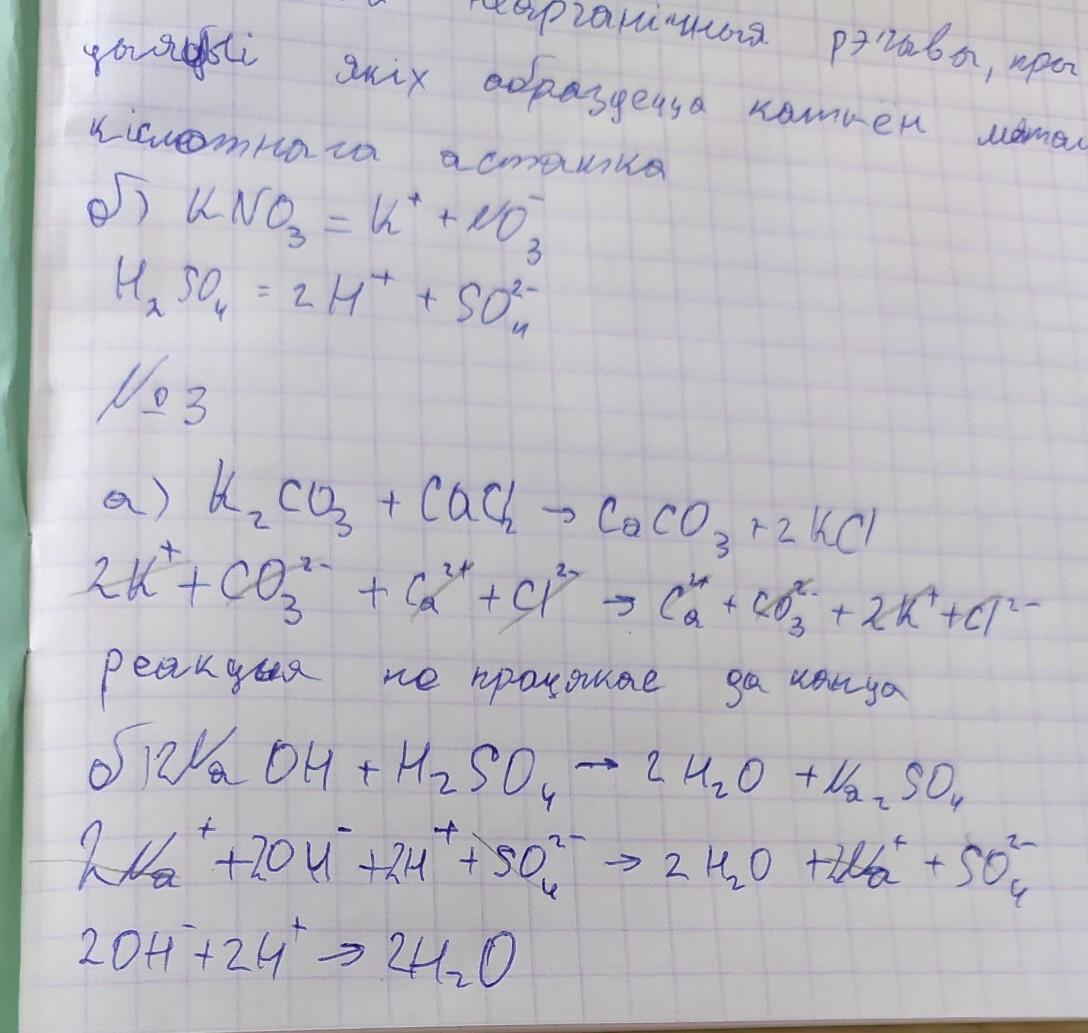 неарганічныя рэчывы, пры
якіх абразуецца катыён метал
кіслотнага астатка
б) KNO₃ = K⁺ + NO₃⁻
H₂SO₄ = 2H⁺ + SO₄²⁻
№3
а) K₂CO₃ + CaCl₂ → CaCO₃ + 2KCl
2K⁺ + CO₃²⁻ + Ca²⁺ + Cl²⁻ → Ca²⁺ + CO₃²⁻ + 2K⁺ + Cl²⁻
реакцыя не працякае да канца
б) 2NaOH + H₂SO₄ → 2H₂O + Na₂SO₄
2Na⁺ + 2OH⁻ + 2H⁺ + SO₄²⁻ → 2H₂O + 2Na⁺ + SO₄²⁻
2OH⁻ + 2H⁺ → 2H₂O